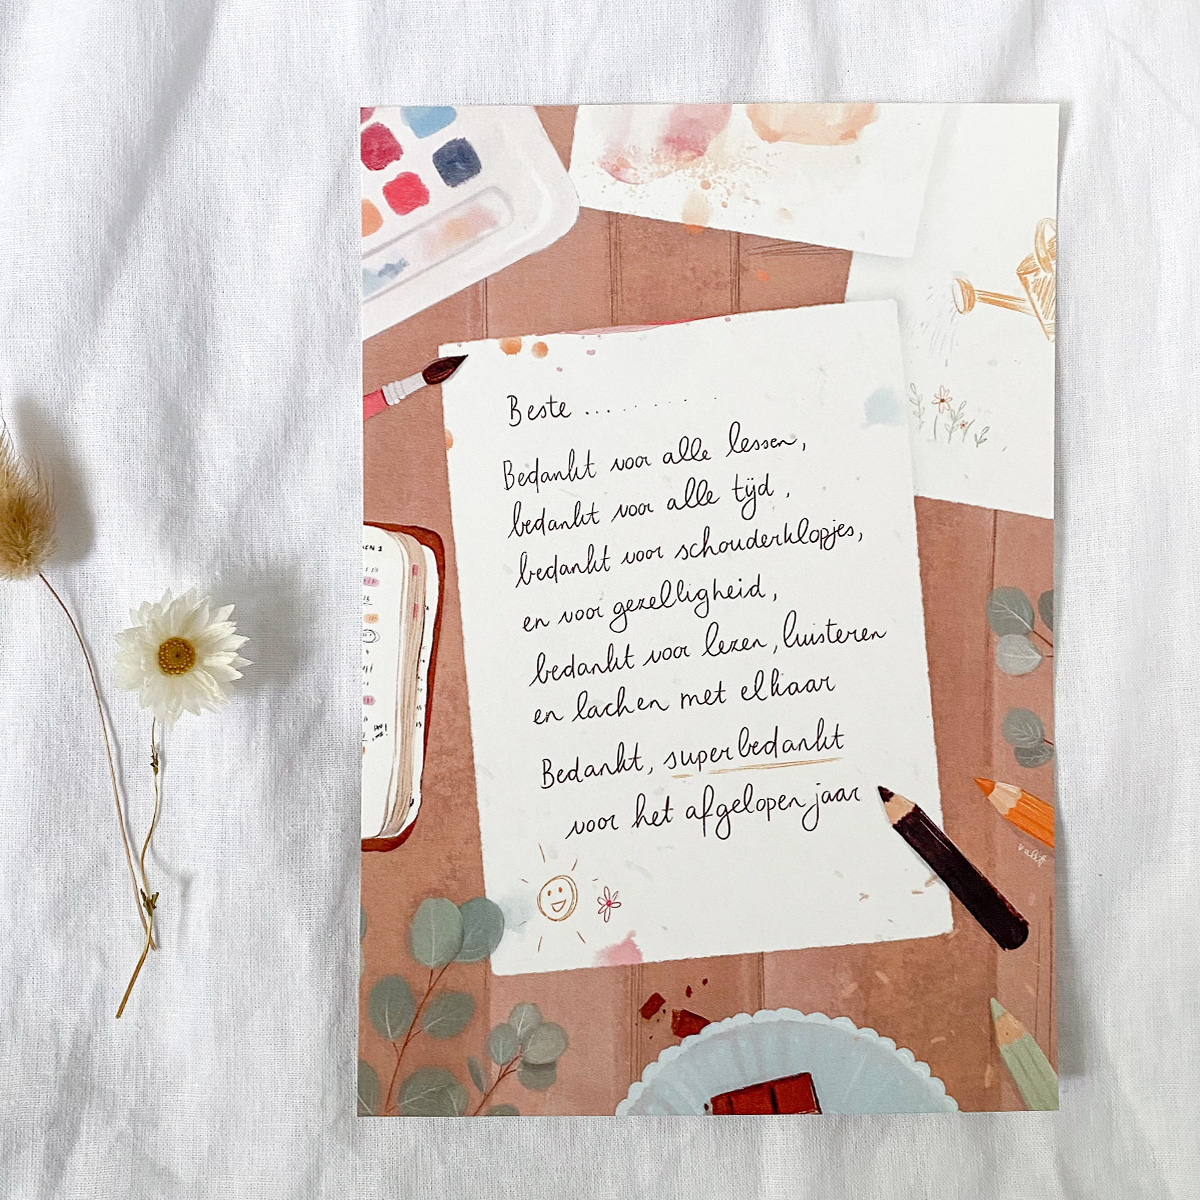 Beste ...........
Bedankt voor alle lessen,
bedankt voor alle tijd,
bedankt voor schouderklopjes,
en voor gezelligheid,
bedankt voor lezen, luisteren
en lachen met elkaar
Bedankt, superbedankt
voor het afgelopen jaar